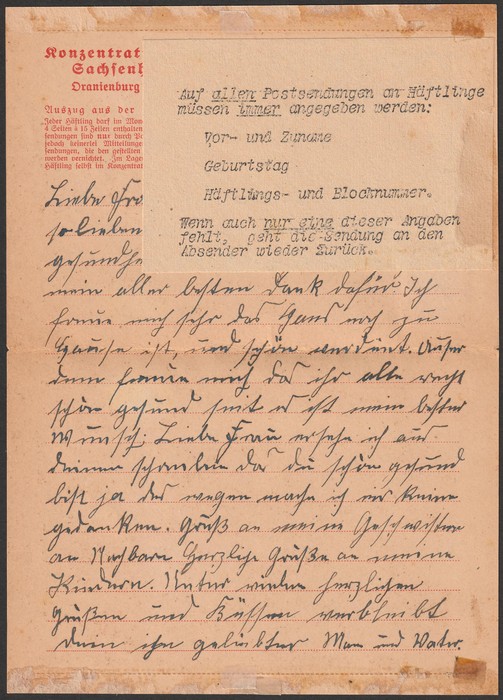 Konzentrat
Sachsenh
Oranienburg
Auszug aus der
Jeder Häftling darf im Mon
4 Seiten à 15 Zeilen enthalten
sendungen sind nur durch P
keinerlei Mitteilunge
sendungen, die den gestellten
werden vernichtet. Im Lage
Häftling selbst im Konzentrat
Auf allen Postsendungen an Häftlinge
müssen immer angegeben werden:
Vor- und Zuname
Geburtstag.
Häftlings- und Blocknummer.
Wenn auch nur eine dieser Angaben
fehlt, geht die Sendung an den
Absender wieder zurück.
Liebe Fra
so lieben
gesundhe
mein aller besten Dank dafür. Ich
fraue mich sehr das Hans noch zu
Hause ist, und schön verdint. Auser
dem fraue mich das ihr alle recht
schön gesund seit es ist mein bester
Wunsch: Liebe Frau ersehe ich aus
deinen schreiben das du schön gesund
bist ja des wegen mache ich mir keine
gedanken. Gruß an meine Geschwister
an Nachbarn Herzliche Grüße an meine
Kindern. Unter vielen herzlichen
Grüßen und Küssen verbleibt
dein ihr geliebter Mann und Vater.